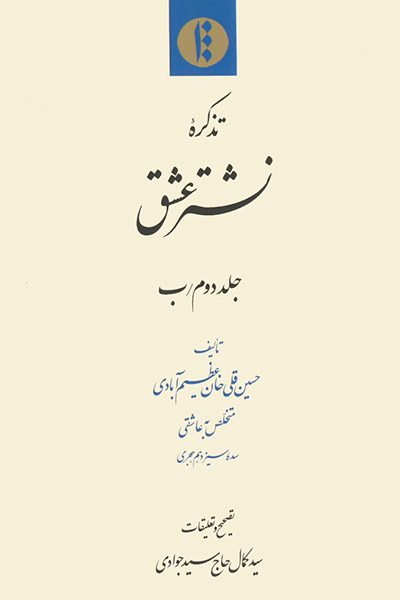 تذکرهٔ
نشتر عشق
جلد دوم/ب
تألیف
حسین قلی خان عظیم آبادی
متخلص به عاشقی
سدهٔ سیزدهم هجری
تصحیح و تعلیقات
سید کمال حاج سید جوادی